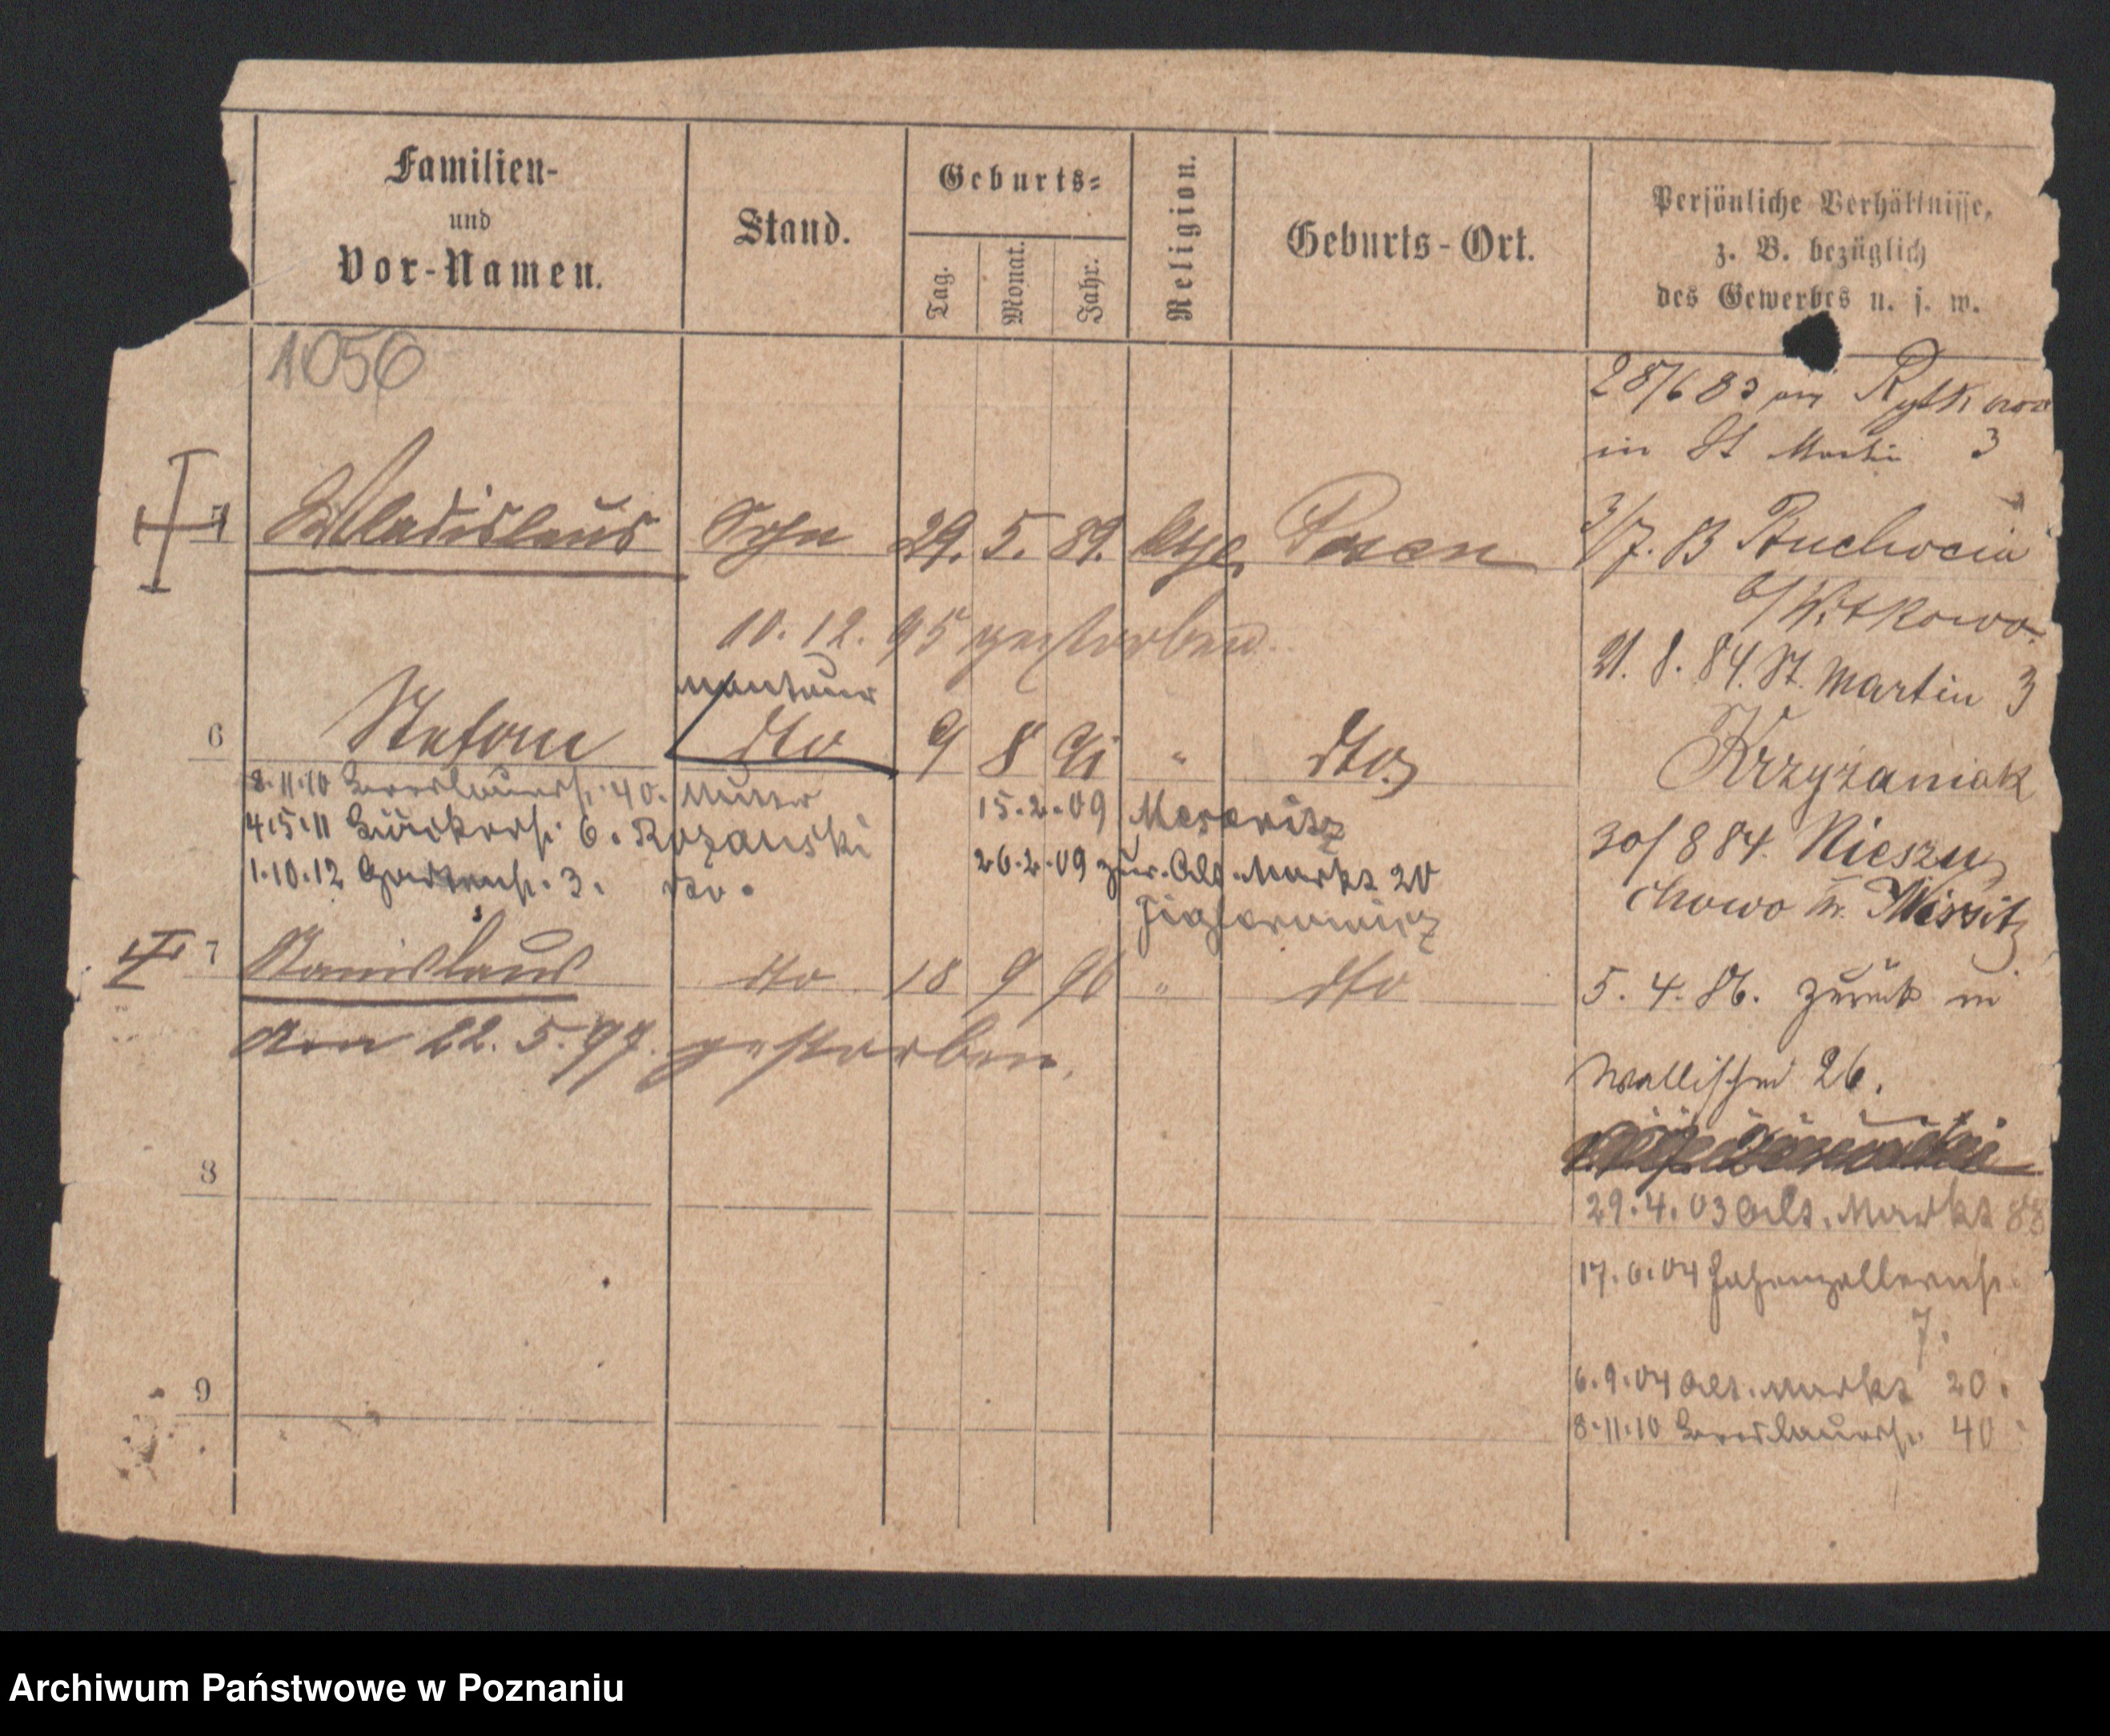 Familien-
und
Vor-Namen.
Stand.
Geburts-
Tag.
Monat.
Jahr.
Religion.
Geburts-Ort.
Persönliche Verhältnisse,
z. B. bezüglich
des Gewerbes u. s. w.
1056
Wladislaus Sohn 29. 5. 89. kth. Posen
10. 12. 95 gestorben.
6 Stefan dto 9 8 91 " dto
8.11.10 Breslauerstr. 40. Mutter
4.5.11 Bäckerstr. 6. Rozanski
1.10.12 Gartenstr. 3. do.
15.2.09 Meseritz
26.2.09 zur. Alt. Markt 20
7 Stanislaus dto 18 9 96 " dto
den 22. 5. 97. gestorben.
8
9
28/6 83 in
in St Martin 3
3/7. B Ruchocin
b/Witkowo.
21. 8. 84. St. Martin 3
Krzyzaniak
30/8 84. Nieszu
chowo Kr. Wirsitz
5. 4. 86. zurück in
Wallischei 26.
29.4.03 Alt. Markt 88
17.6.04 Hohenzollernstr.
7.
6.9.04 Alt. Markt 20.
8.11.10 Breslauerstr. 40
Archiwum Państwowe w Poznaniu